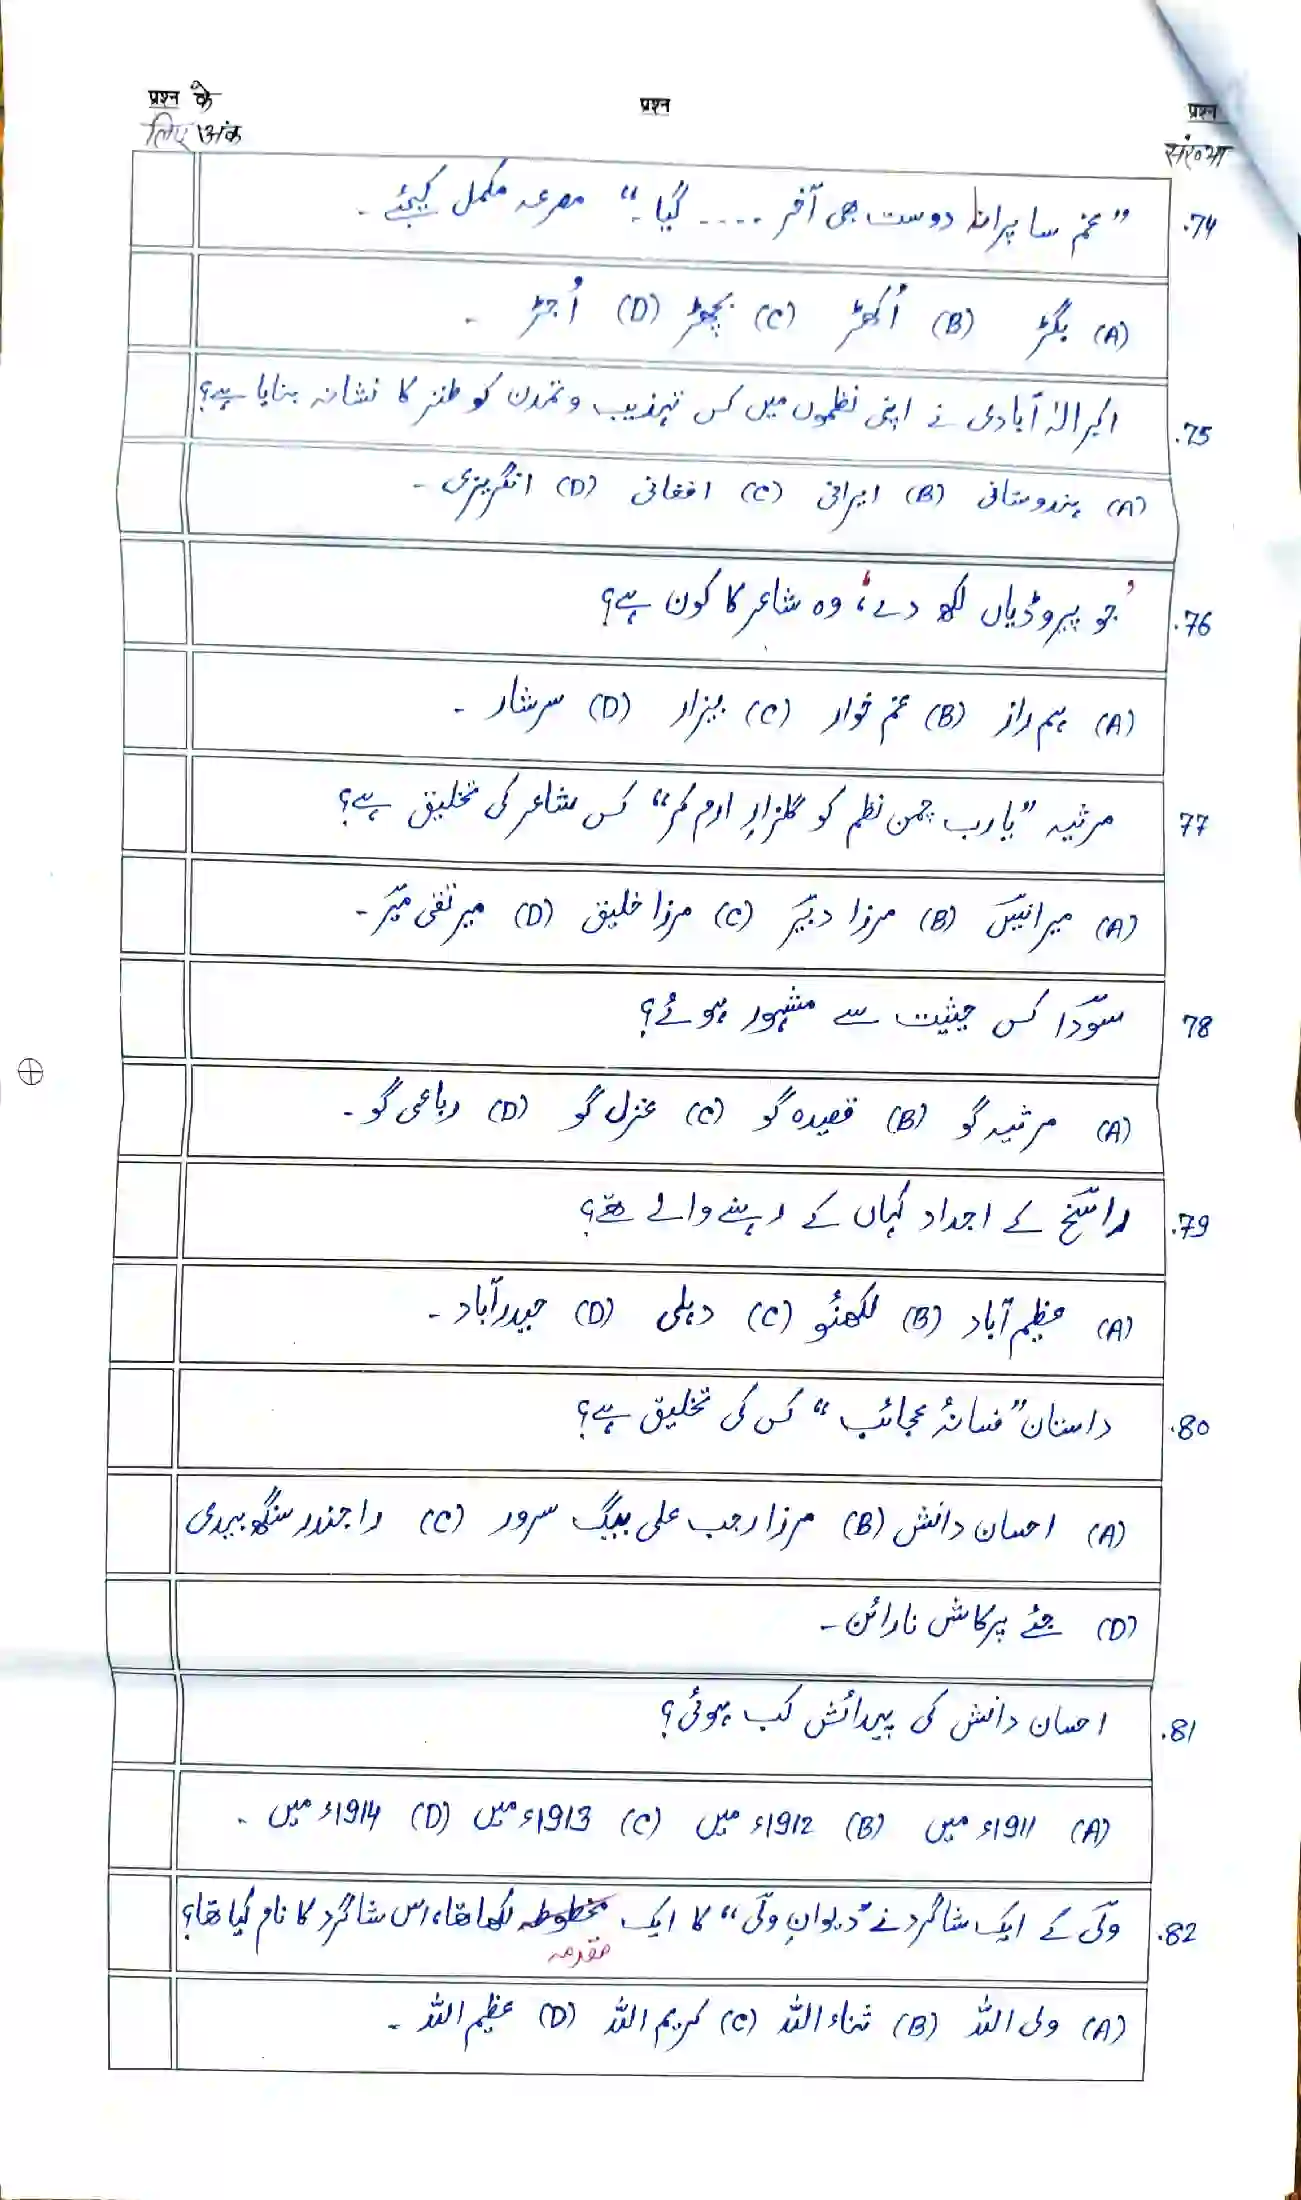 प्रश्न के
लिए अंक
प्रश्न
प्रश्न
संख्या
74. ”غم سا پرانا دوست بھی آخر ۔۔۔۔ گیا۔“ مصرعہ مکمل کیجئے ۔
(A) بگڑ (B) اُکھڑ (C) بچھڑ (D) اُجڑ ۔
75. اکبر الہٰ آبادی نے اپنی نظموں میں کس تہذیب و تمدن کو طنز کا نشانہ بنایا ہے؟
(A) ہندوستانی (B) ایرانی (C) افغانی (D) انگریزی ۔
76. ’جو پیروڈیاں لکھ دے‘، وہ شاعر کا کون ہے؟
(A) ہم راز (B) غم خوار (C) بیزار (D) سرشار ۔
77 مرثیہ ”یارب چمن نظم کو گلزارِ ارم کر“ کس شاعر کی تخلیق ہے؟
(A) میر انیسؔ (B) مرزا دبیرؔ (C) مرزا خلیق (D) میر تقی میرؔ ۔
78 سوؔدا کس حیثیت سے مشہور ہوئے؟
(A) مرثیہ گو (B) قصیدہ گو (C) غزل گو (D) رباعی گو ۔
79. راسؔخ کے اجداد کہاں کے رہنے والے تھے؟
(A) عظیم آباد (B) لکھنؤ (C) دہلی (D) حیدرآباد ۔
80. داستان ”فسانۂ عجائب“ کس کی تخلیق ہے؟
(A) احسان دانش (B) مرزا رجب علی بیگ سرور (C) راجندر سنگھ بیدی
(D) جئے پرکاش نارائن ۔
81. احسان دانش کی پیدائش کب ہوئی؟
(A) 1911ء میں (B) 1912ء میں (C) 1913ء میں (D) 1914ء میں ۔
82. ولؔی کے ایک شاگرد نے ”دیوانِ ولؔی“ کا ایک مخطوطہ لکھا تھا، اس شاگرد کا نام کیا تھا؟
مقدمہ
(A) ولی اللہ (B) ثناء اللہ (C) کریم اللہ (D) عظیم اللہ ۔